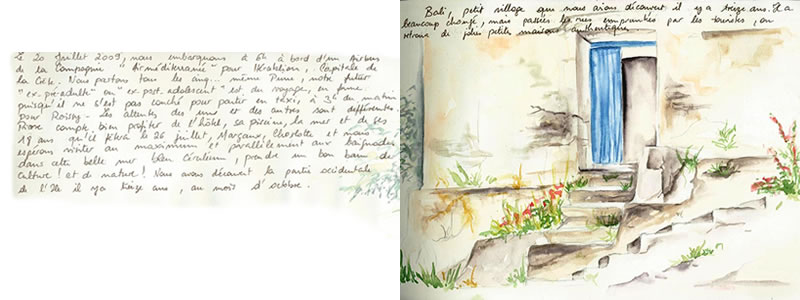 Le 20 Juillet 2009, nous embarquons à 6h à bord d'un Airbus
de la Compagnie "Airméditerranée" pour Héraklion, Capitale de
la Crète. Nous partons tous les cinq... même Pierre, notre futur
"ex. pré-adulte" ou "ex post. adolescent" est du voyage, en forme
puisqu'il ne s'est pas couché pour partir en taxi, à 3h du matin
pour Roissy - Les attentes des uns et des autres sont différentes
Pierre compte bien profiter de l'hôtel, sa piscine, la mer et de ses
18 ans qu'il fêtera le 26 juillet, Margaux, Charlotte et moi
espérons visiter au maximum et parallèlement aux baignades
dans cette belle mer bleu céruleum, prendre un bon bain de
culture ! et de nature ! Nous avons découvert la partie occidentale
de l'Ile il y a treize ans, au mois d'octobre.
Bali, petit village que nous avions découvert il y a treize ans. Il a
beaucoup changé, mais passées les rues empruntées par les touristes, on
retrouve de plus petites maisons authentiques